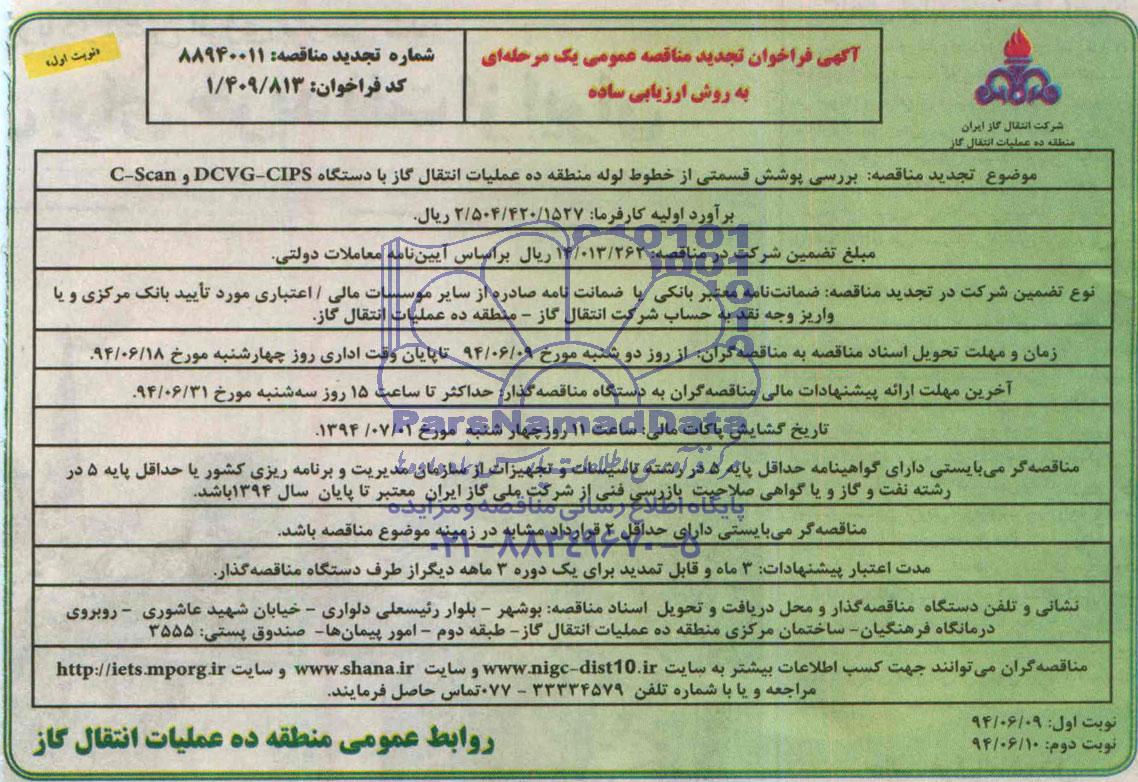 «نوبت اول»
شماره تجدید مناقصه: ۸۸۹۴۰۰۱۱
کد فراخوان: ۱/۴۰۹/۸۱۳
آگهی فراخوان تجدید مناقصه عمومی یک مرحله‌ای
به روش ارزیابی ساده
شرکت انتقال گاز ایران
منطقه ده عملیات انتقال گاز
موضوع تجدید مناقصه: بررسی پوشش قسمتی از خطوط لوله منطقه ده عملیات انتقال گاز با دستگاه DCVG-CIPS و C-Scan
برآورد اولیه کارفرما: ۲/۵۰۴/۴۲۰/۱۵۲۷ ریال.
مبلغ تضمین شرکت در مناقصه: ۱۴/۰۱۳/۲۶۲ ریال براساس آیین‌نامه معاملات دولتی.
نوع تضمین شرکت در تجدید مناقصه: ضمانت‌نامه معتبر بانکی یا ضمانت نامه صادره از سایر موسسات مالی / اعتباری مورد تأیید بانک مرکزی و یا
واریز وجه نقد به حساب شرکت انتقال گاز – منطقه ده عملیات انتقال گاز.
زمان و مهلت تحویل اسناد مناقصه به مناقصه‌گران: از روز دو شنبه مورخ ۹۴/۰۶/۰۹ تاپایان وقت اداری روز چهارشنبه مورخ ۹۴/۰۶/۱۸.
آخرین مهلت ارائه پیشنهادات مالی مناقصه‌گران به دستگاه مناقصه‌گذار: حداکثر تا ساعت ۱۵ روز سه‌شنبه مورخ ۹۴/۰۶/۳۱.
تاریخ گشایش پاکات مالی: ساعت ۱۱ روزچهار شنبه مورخ ۱۳۹۴ /۰۷/۰۱.
مناقصه‌گر می‌بایستی دارای گواهینامه حداقل پایه ۵ در رشته تاسیسات و تجهیزات از سازمان مدیریت و برنامه ریزی کشور یا حداقل پایه ۵ در
رشته نفت و گاز و یا گواهی صلاحیت بازرسی فنی از شرکت ملی گاز ایران معتبر تا پایان سال ۱۳۹۴باشد.
مناقصه‌گر می‌بایستی دارای حداقل ۲ قرارداد مشابه در زمینه موضوع مناقصه باشد.
مدت اعتبار پیشنهادات: ۳ ماه و قابل تمدید برای یک دوره ۳ ماهه دیگراز طرف دستگاه مناقصه‌گذار.
نشانی و تلفن دستگاه مناقصه‌گذار و محل دریافت و تحویل اسناد مناقصه: بوشهر – بلوار رئیسعلی دلواری – خیابان شهید عاشوری – روبروی
درمانگاه فرهنگیان– ساختمان مرکزی منطقه ده عملیات انتقال گاز– طبقه دوم – امور پیمان‌ها– صندوق پستی: ۳۵۵۵
مناقصه‌گران می‌توانند جهت کسب اطلاعات بیشتر به سایت www.nigc-dist10.ir و سایت www.shana.ir و سایت http://iets.mporg.ir
مراجعه و یا با شماره تلفن ۳۳۳۳۴۵۷۹ – ۰۷۷تماس حاصل فرمایند.
نوبت اول: ۹۴/۰۶/۰۹
نوبت دوم: ۹۴/۰۶/۱۰
روابط عمومی منطقه ده عملیات انتقال گاز
ParsNamadData
پایگاه اطلاع رسانی مناقصه و مزایده
۰۲۱-۸۸۳۴۹۶۷۰-۵